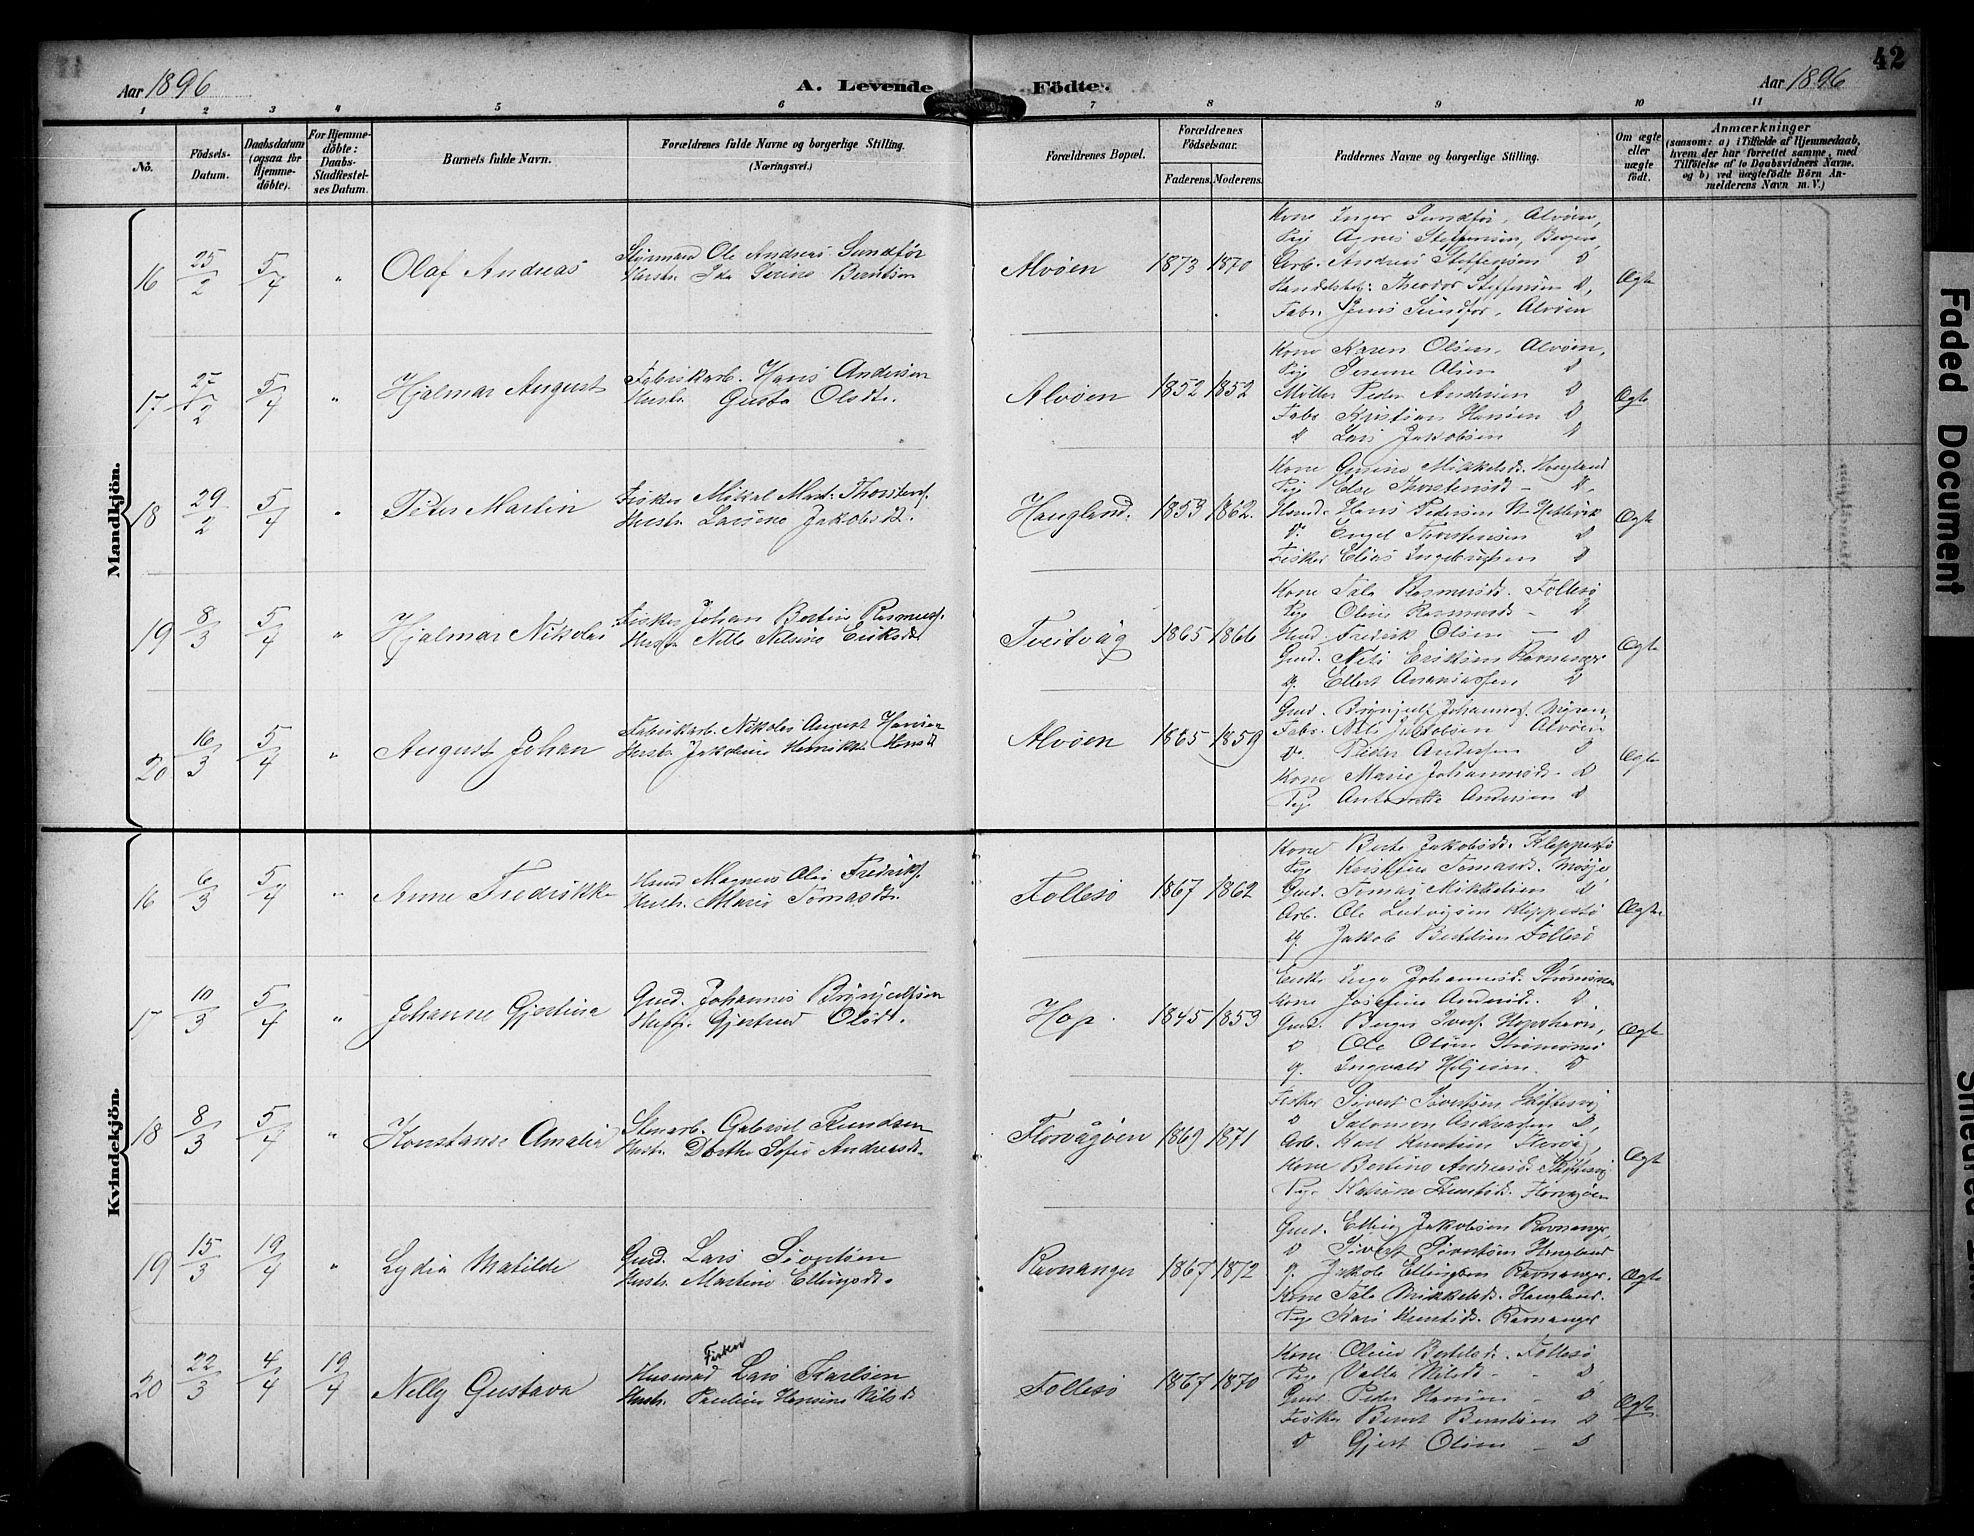 42
Aar 1896
A. Levende
Födte.
Aar 1896
1 2 3 4 5 6 7 8 9 10 11
No.
Födsels-Datum.
Daabsdatum (ogsaa for Hjemme-döbte).
For Hjemme-döbte: Daabs-Stadfæstel-ses Datum.
Barnets fulde Navn.
Forældrenes fulde Navne og borgerlige Stilling. (Næringsvei.)
Forældrenes Bopæl.
Forældrenes Födselsaar.
Faderens. Moderens.
Faddernes Navne og borgerlige Stilling.
Om ægte eller uægte födt.
Anmærkninger
(saasom: a) i Tilfælde af Hjemmedaab, hvem der har forrettet samme, med Tilföielse af to Daabsvidners Navne, og b) ved uægtefödte Börn An-melderens Navn m. V.)
Mandkjön.
16 25/2 5/4 " Olaf Andreas
Styrmand Ole Andreas Sundför
Hustr. Ida Berntsen
Alvöen 1873 1870
Kone Inger Sundför, Alvöen,
Pige Agnes Steffensen, Bergen,
Arb. Andreas Steffensen D
Theodor Steffensen D,
Fabr. Jens Sundför, Alvöen
Ægte
17 27/2 5/4 " Hjalmar August
Fabrikarb. Hans Andersen
Hustr. Gusta Olsdt.
Alvöen 1852 1852
Kone Karen Olsen, Alvöen,
Pige Serene Olsen D
Möller Peder Andersen D
Fabr. Kristian Hansen D
D Lars Jakobsen D
Ægte
18 29/2 5/4 " Peter Martin
Fisker Mikal Mart. Thorstens.
Hustr. Larsine Jakobsdt.
Haugland. 1853 1862.
Kone Mikkelsd. Haugland
Pige Else Thorstensd. D,
Hans Pedersen
D. Engel Thorstensen D
Fisker Elias Ingebrigtsen D
Ægte
19 8/3 5/4 " Hjalmar Nikolai
Fisker Johan Bertin Rasmuss.
Hustr. Nille Nilsine Eriksdt
Tveitvåg 1865 1866
Kone Tala Rasmusd. Follesö
Pige Oline Rasmusd. D
Fredrik Olsen D
Gmd. Nils Eriksen Ravnanger
Ellert Ananiassen D
Ægte
20 16/3 5/4 " August Johan
Fabrikarb. Nikolai August Hansen
Hustr. Jakobine Henrikke Monsdt
Alvöen 1865 1859
Gmd. Brynjulf Johanness.
Fabr. Nils Jakobsen Alvöen
D. Peder Andersen D
Kone Marie Johannesd. D
Pige Antonette Andersen D
Ægte
Kvindekjön.
16 6/3 5/4 " Anne Fredrikke
Magnus Olai Fredriks.
Hustr. Marie Tomasdt.
Follesö 1867 1862
Kone Berte Jakobsd. Kleppestö
Pige Kristine Tomasd.
Gmd. Tomas Mikkelsen D,
Arb. Ole Ludvigsen Kleppestö
Jakob Bertelsen Follesö
Ægte
17 10/3 5/4 " Johanne Gjertine
Gmd. Johannes Brynjulfsen
Hustr. Gjertrud Olsdt.
Hop. 1845 1853
Enke Inga Johannesd. Strömsnes
Kone Josefine Andersd. D
Gmd. Berge Ivers. Hopshavn,
D Ole Olsen Strömsnes
Ingvald Helgesen. D
Ægte
18 8/3 5/4 " Konstanse Amalia
Stenarb. Gabriel Knudsen
Hustr. Dorthe Sofie Andreasd.
Florvågöen 1869 1871
Fisker Sivert Sivertsen
D Salomon Andreassen D,
Arb. Karl Knutsen Florvåg,
Kone Bertine Andreasd.
Pige Knutsd. Florvagöen
Ægte
19 15/3 19/4 " Lydia Matilde
Gmd. Lars Sivertsen
Hustr. Martine Ellingsdt.
Ravnanger 1867 1872
Gmd. Elling Jakobsen Ravnanger,
D Sivert Sivertsen Haugland
Jakob Ellingsen Ravnanger.
Kone Tala Mikkelsd. Haugland.
Pige Kari Knutsd. Ravnanger
Ægte
20 22/3 4/4 19/4 Nelly Gustava
Fisker
Husmand Lars Karlsen
Hustr. Pauline Hansine Nilsd
Follesö 1867 1870
Kone Oline Bertelsd. Follesö
Pige Valla Nilsd. D
Gmd. Peder Hansen D
Fisker Bernt Berntsen D
D Gjert Olsen D
Ægte.
Faded Document